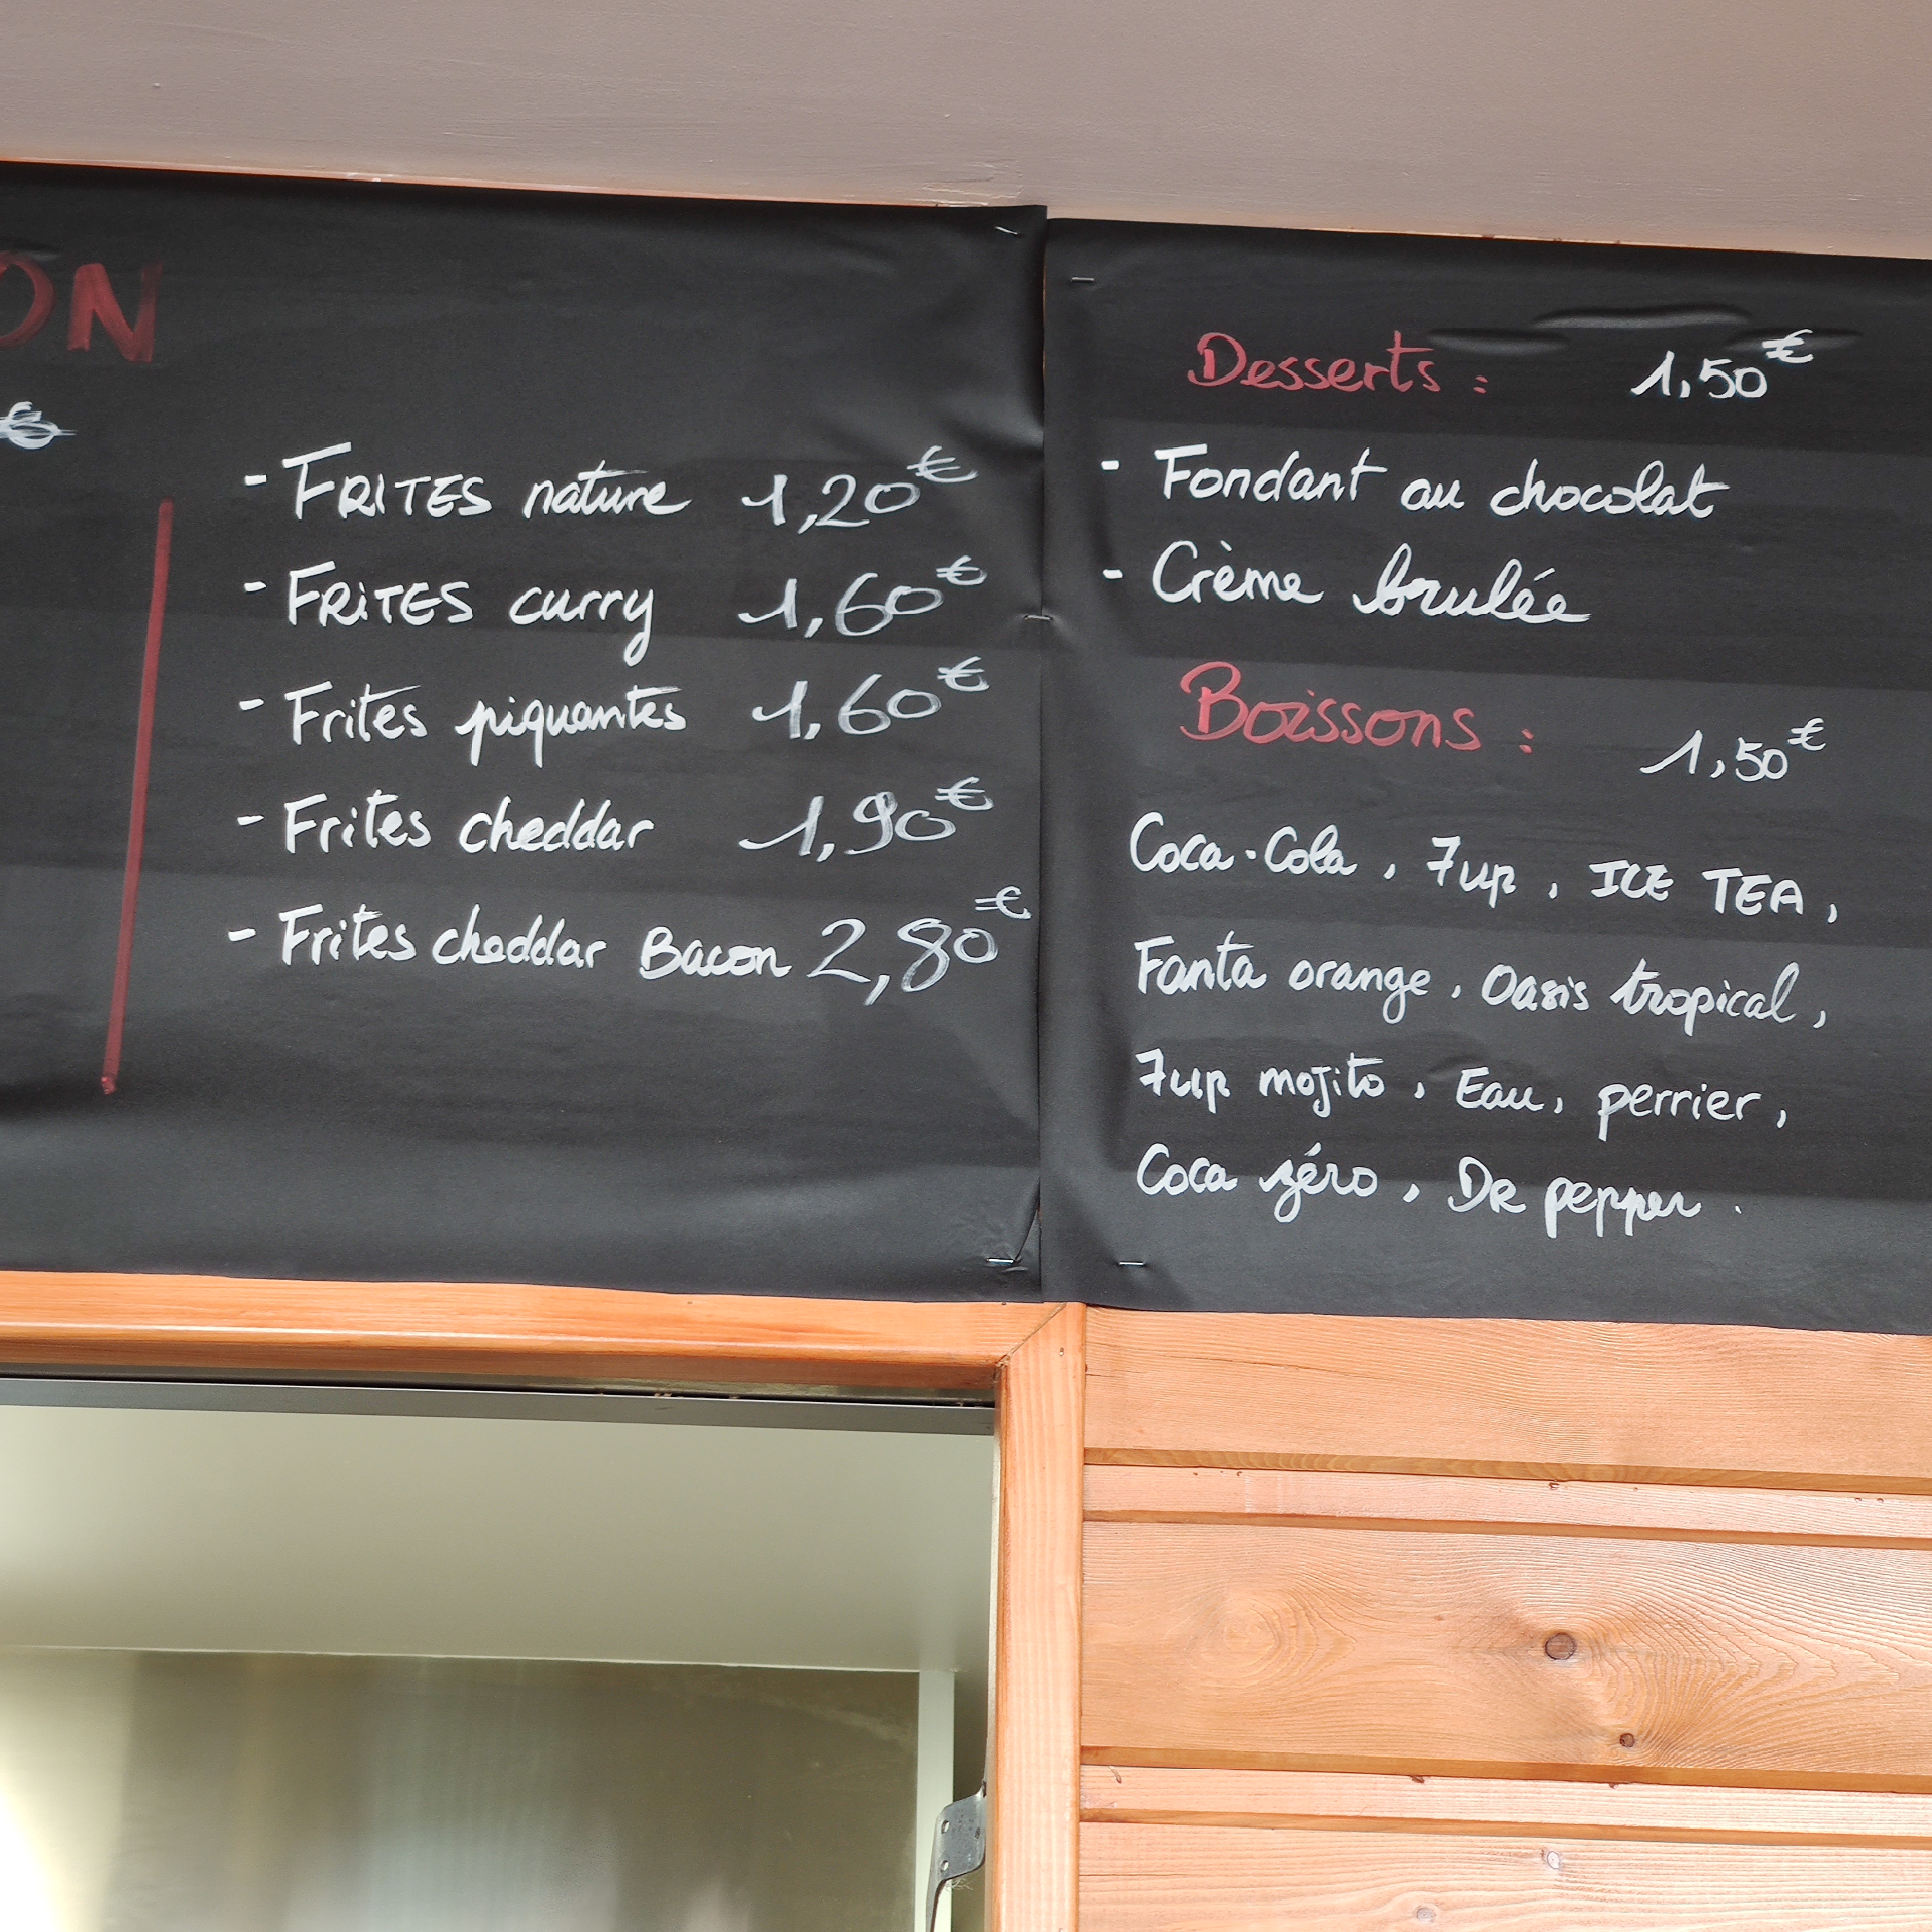 ON
€
- FRITES nature 1,20€
- FRITES curry 1,60€
- Frites piquantes 1,60€
- Frites cheddar 1,90€
- Frites cheddar Bacon 2,80€
Desserts : 1,50€
- Fondant au chocolat
- Crème brulée
Boissons : 1,50€
Coca-Cola, 7up, ICE TEA,
Fanta orange, Oasis tropical,
7up mojito, Eau, perrier,
Coca zéro, DR pepper.